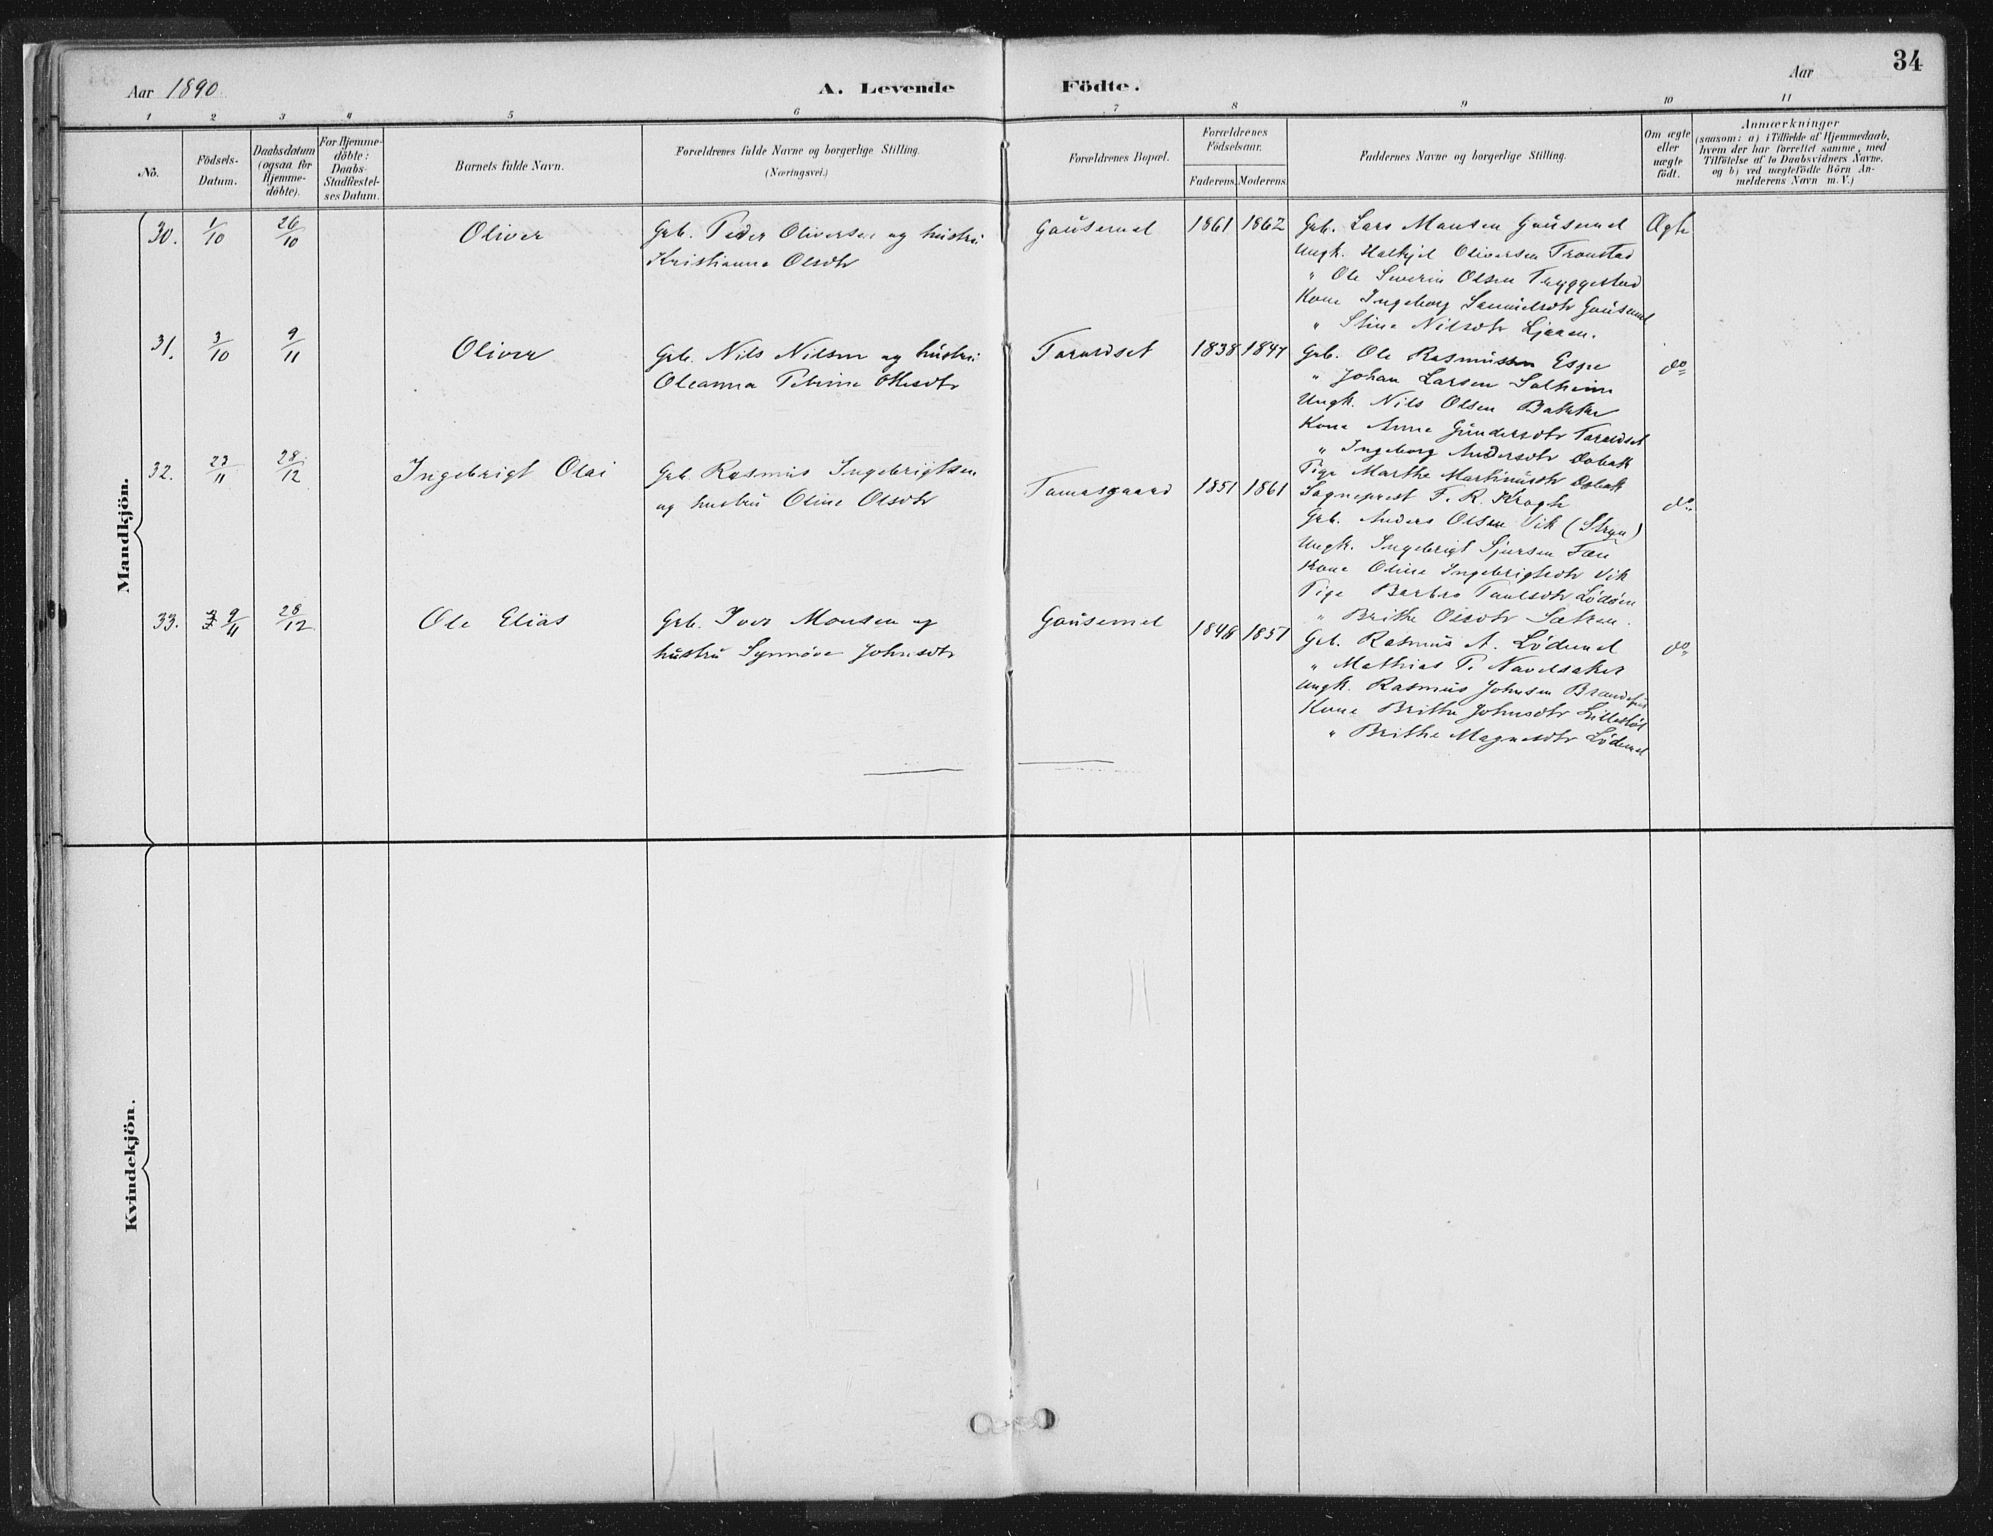 34
Aar 1890
A. Levende
Födte.
Aar
1 2 3 4 5 6 7 8 9 10 11
No.
Födsels-
Datum.
Daabsdatum
(ogsaa for
Hjemme-
döbte).
For Hjemme-
döbte:
Daabs-
Stadfæstel-
ses Datum.
Barnets fulde Navn.
Forældrenes fulde Navne og borgerlige Stilling.
(Næringsvei.)
Forældrenes Bopæl.
Forældrenes
Födselsaar.
Faderens. Moderens.
Faddernes Navne og borgerlige Stilling.
Om ægte
eller
uægte
födt.
Anmærkninger
(saasom: a) i Tilfælde af Hjemmedaab,
hvem der har forrettet samme, med
Tilföielse af to Daabsvidners Navne.
og b) ved uægtefödte Börn An-
melderens Navn m. V.)
Mandkjön.
30. 1/10 26/10 Oliver
Grb. Peder Oliversen og hustru
Kristianna Olsdtr
Gausemel 1861 1862
Grb. Lars Monsen Gausemel
Ungk. Halkjel Oliversen Tronstad
" Ole Severin Olsen Tryggestad
Kone Ingeborg Samuelsdtr Gausemel
" Stina Nilsdtr Ljøen.
Ægte
31. 3/10 9/11 Oliver
Grb. Nils Nilsen og hustru
Oleanna Petrine Ottesdtr
Taraldset 1838 1847
Grb. Ole Rasmussen Espe
" Johan Larsen Solheim
Ungk. Nils Olsen Bakke
Kone Anne Gundersdtr Taraldset
" Ingeborg Andersdtr
Pige Marthe Martinusdtr
do
32. 23/11 28/12 Ingebrigt Olai
Grb. Rasmus Ingebrigtsen
og hustru Oline Olsdtr
Tomasgaard 1851 1861
Sogneprest F. R. Krogh
Grb. Anders Olsen Vik (Stryn)
Ungk. Ingebrigt Sjursen
Kone Oline Ingebrigtsdtr Vik
Pige Barbro Paulsdtr Lödöen
" Brithe Olsdtr Sætren.
do
33. 9/11 28/12 Ole Elias
Grb. Iver Monsen og
hustru Synnöve Johnsdtr
Gausemel 1848 1851
Grb. Rasmus A. Lödemel
" Mathias P. Navelsaker
Ungk. Rasmus Johnsen
Kone Brithe Johnsdtr
" Brithe Magnesdtr Lödemel
do
Kvindekjön.